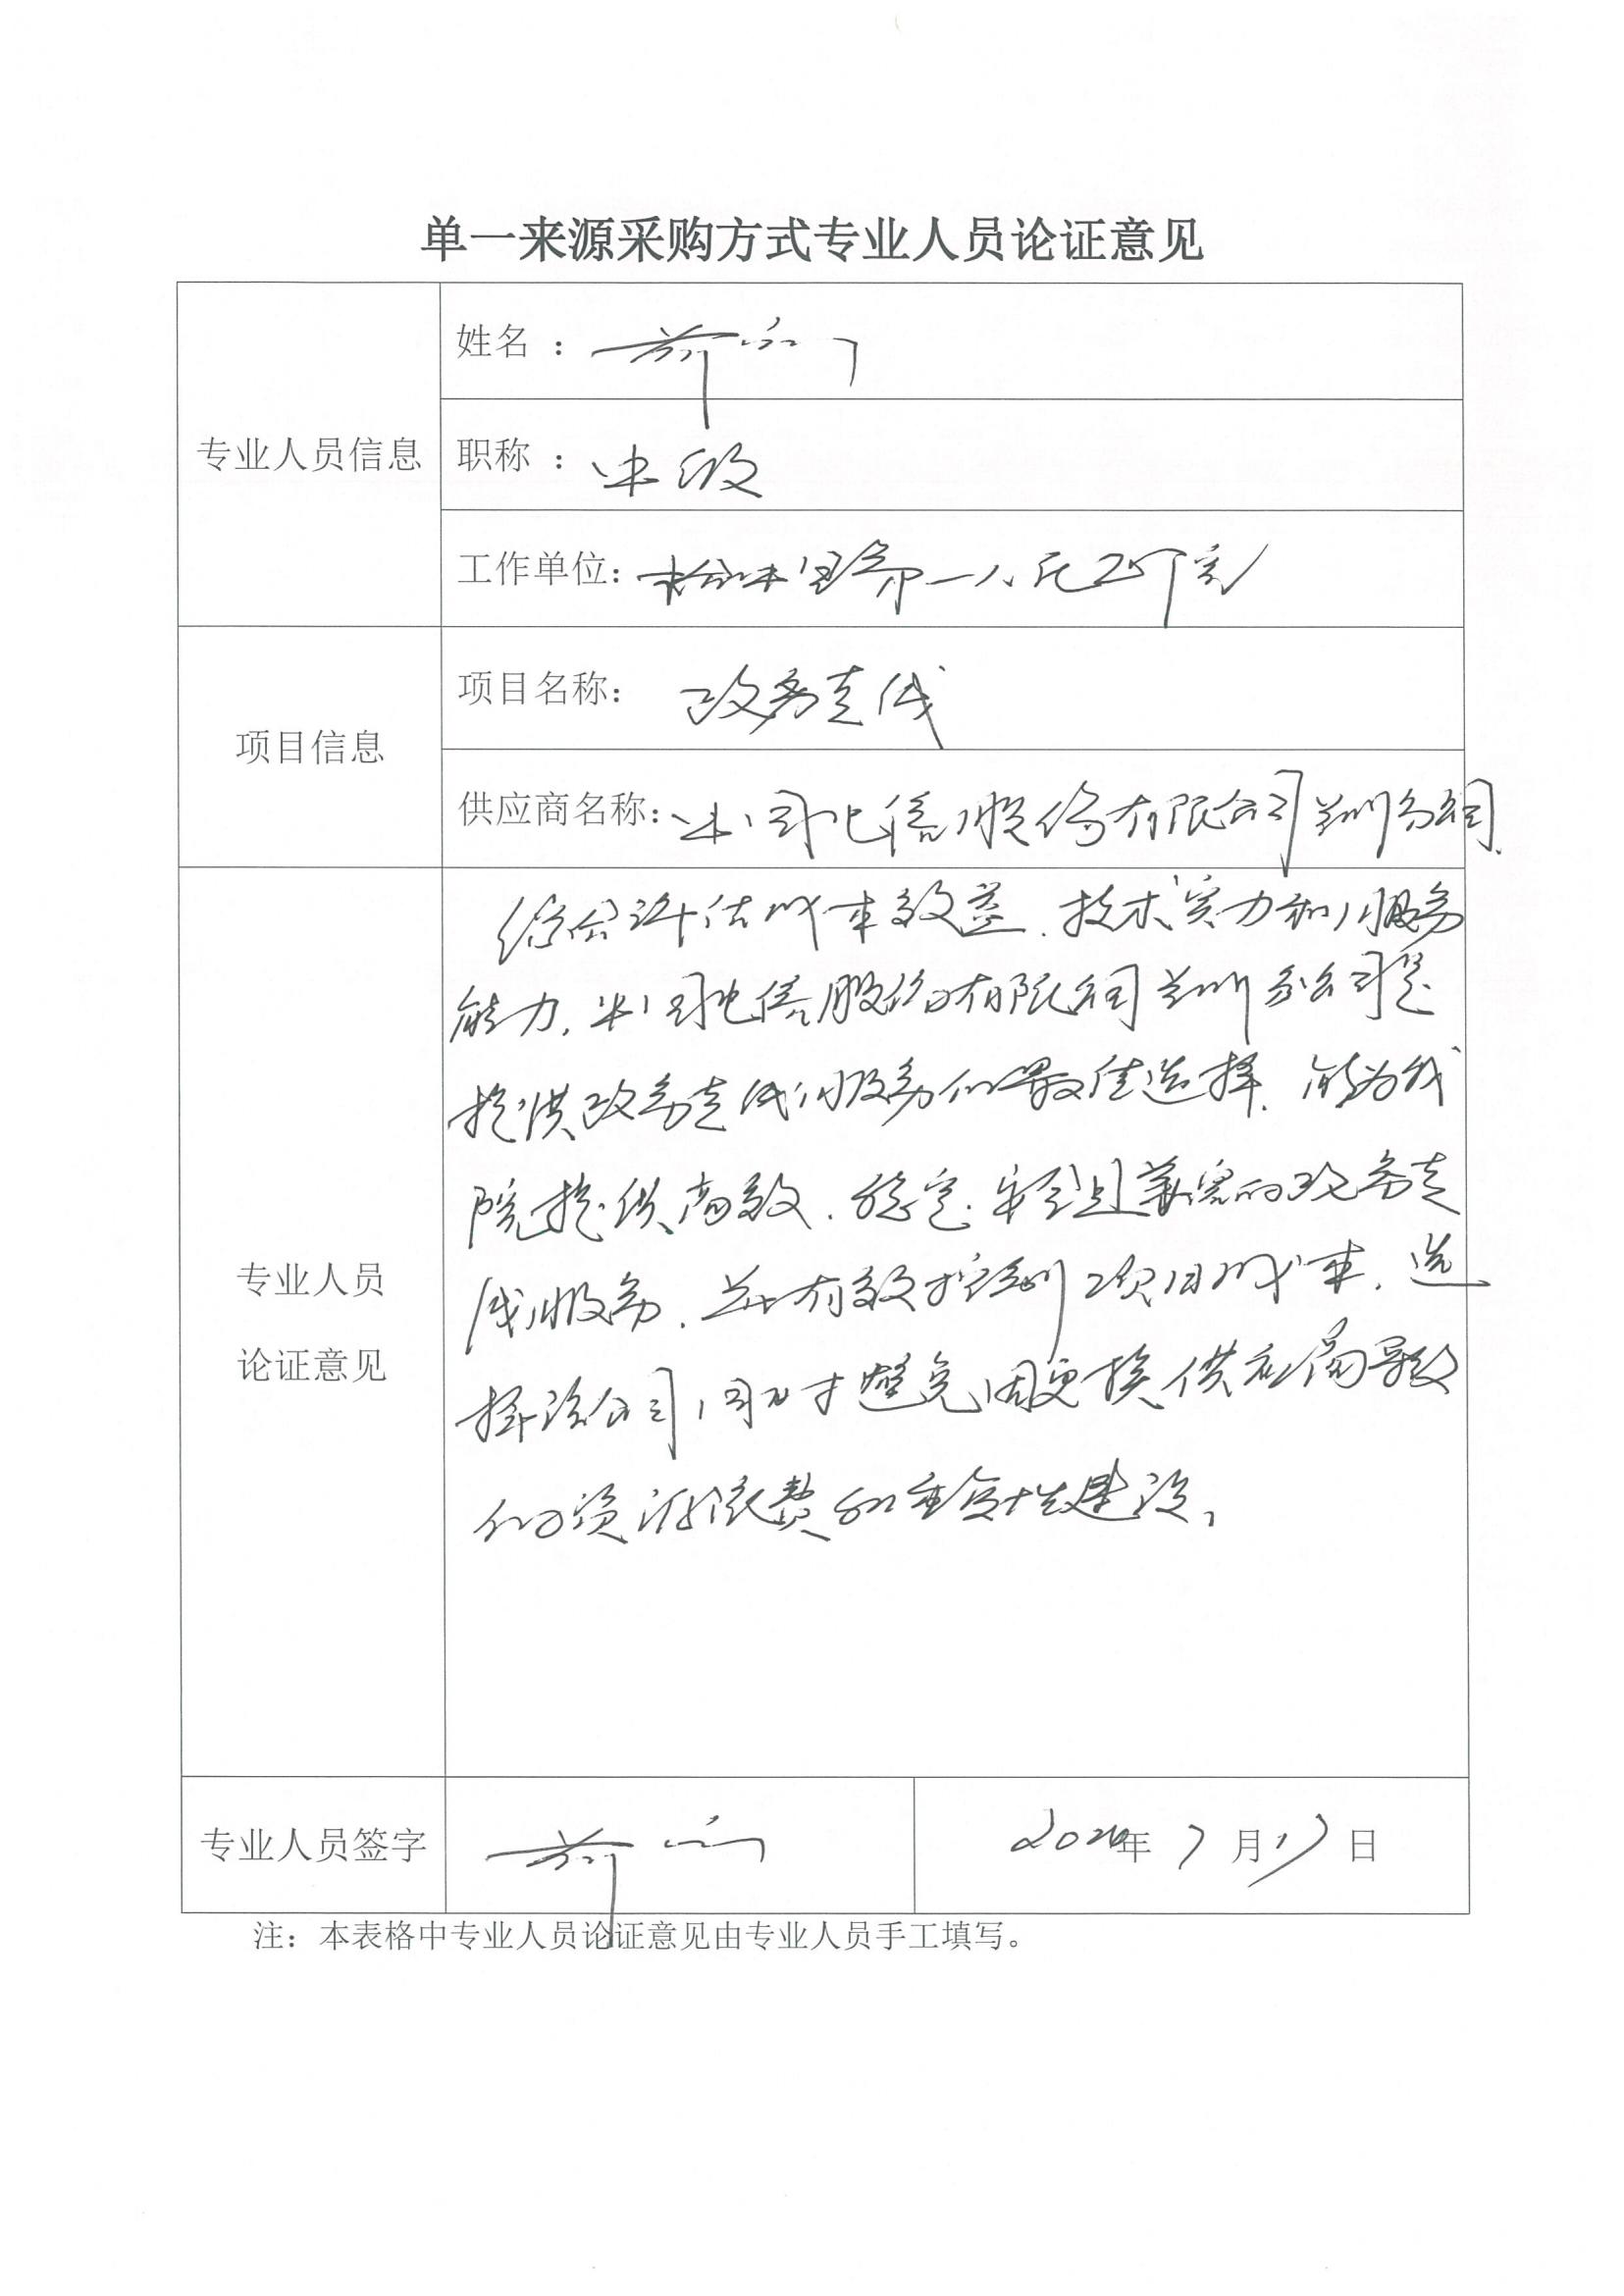 单一来源采购方式专业人员论证意见
专业人员信息
姓名：
职称：中级
工作单位：榆中县第一人民医院
项目信息
项目名称：政务专线
供应商名称：中国电信股份有限公司兰州分公司
专业人员
论证意见
综合评估成本效益、技术实力和服务
能力，中国电信股份有限公司兰州分公司是
提供政务专线服务的最佳选择，能为我
院提供高效、稳定、安全且兼容的政务专
线服务，并有效控制项目成本，选
择该公司，同时避免因更换供应商导致
的资源浪费和重复性建设。
专业人员签字
2024年7月17日
注：本表格中专业人员论证意见由专业人员手工填写。